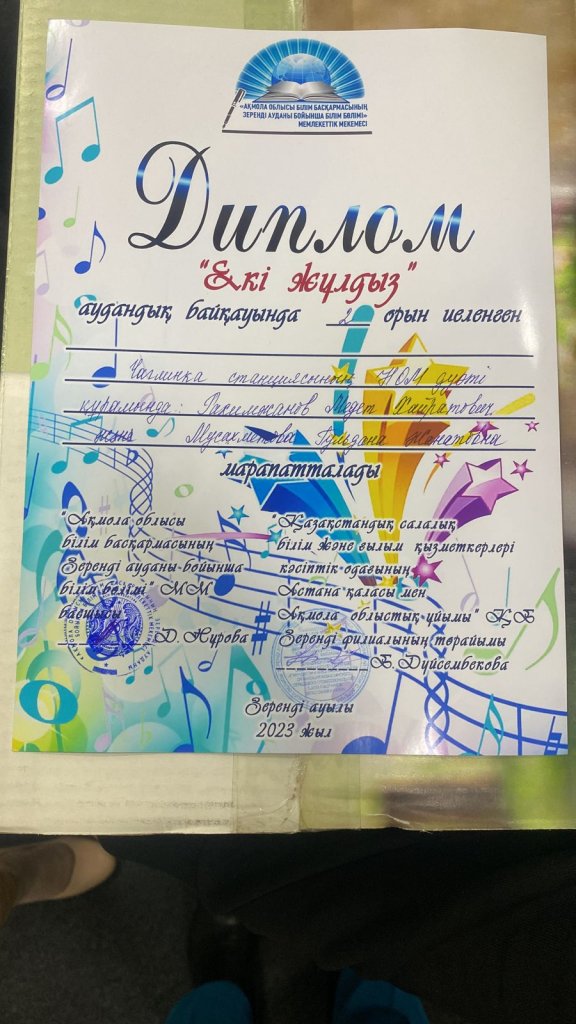 «АҚМОЛА ОБЛЫСЫ БІЛІМ БАСҚАРМАСЫНЫҢ
ЗЕРЕНДІ АУДАНЫ БОЙЫНША БІЛІМ БӨЛІМІ»
МЕМЛЕКЕТТІК МЕКЕМЕСІ
Диплом
"Екі жұлдыз"
аудандық байқауында 2 орын иеленген
Чаглинка станциясының НОМ дуэті
құрамында: Рахимжанов Медет Хайратович
және Мусахметова Гульдана
марапатталады
"Ақмола облысы
білім басқармасының
Зеренді ауданы бойынша
білім бөлімі" ММ
басшысы
Д.Нұрова
"Қазақстандық салалық
білім және ғылым қызметкерлері
кәсіптік одағының
Астана қаласы мен
Ақмола облыстық ұйымы" ҚБ
Зеренді филиалының төрайымы
Б.Дүйсембекова
Зеренді ауылы
2023 жыл